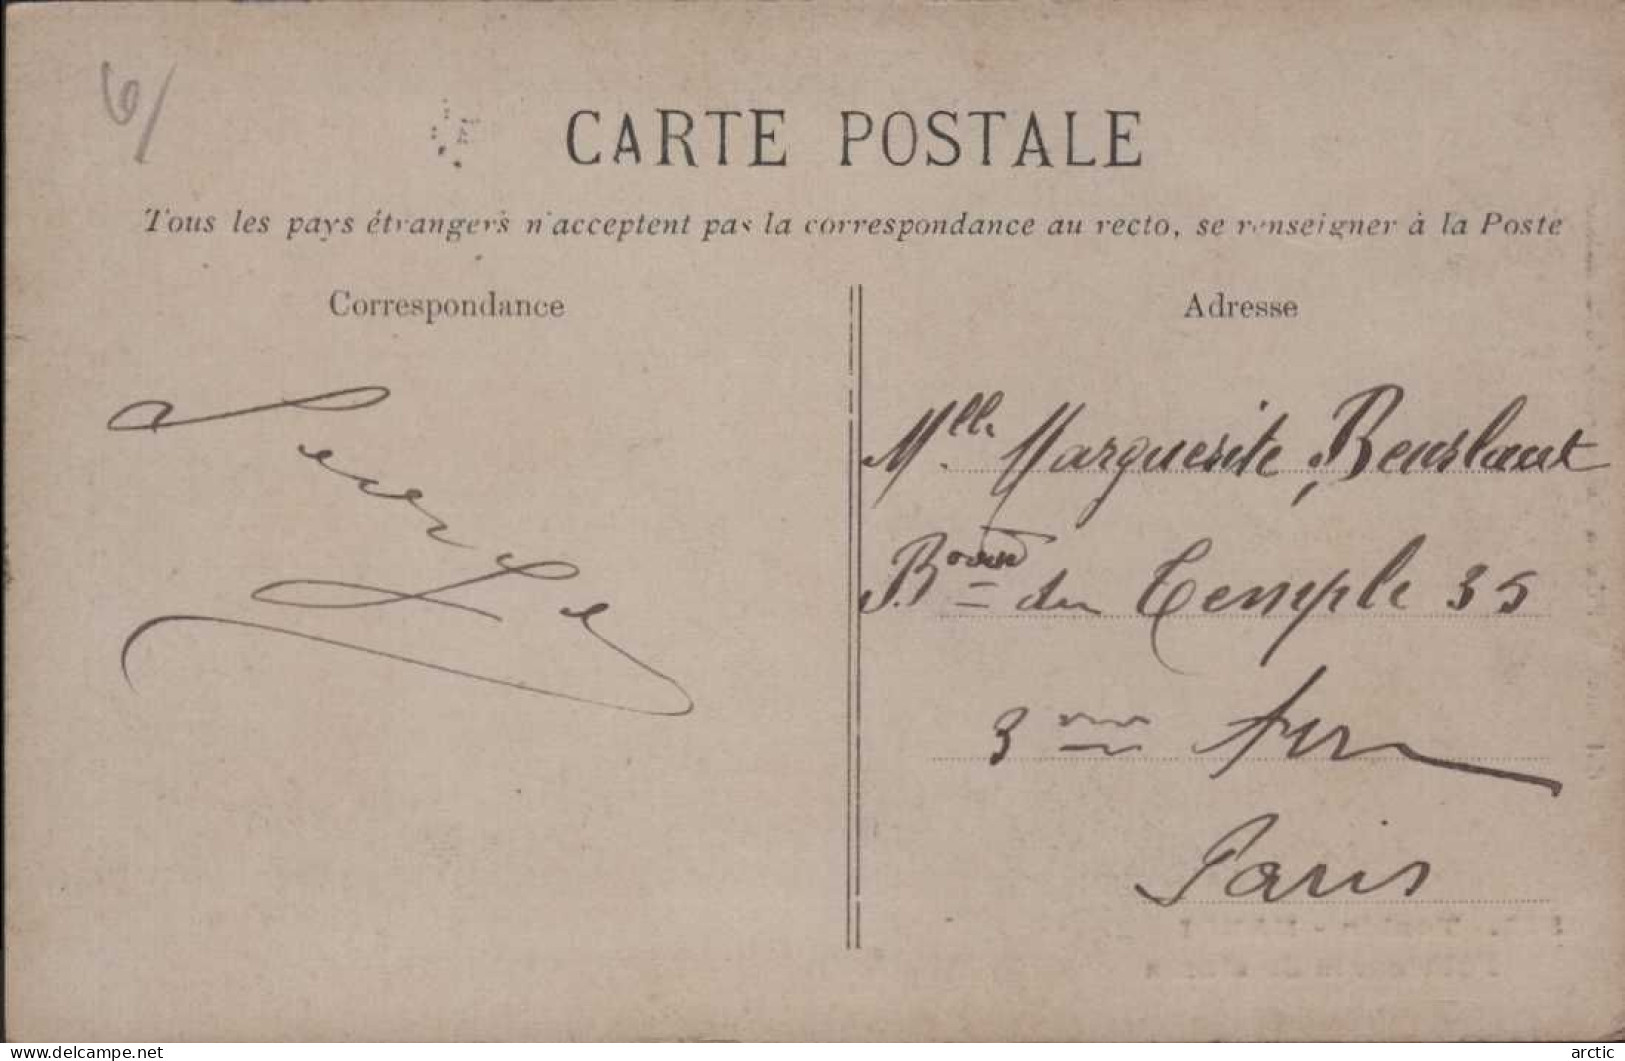 6/
CARTE POSTALE
Tous les pays étrangers n'acceptent pas la correspondance au recto, se renseigner à la Poste
Correspondance
Adresse
Mlle. Marguerite
Bd du Temple 35
3me
Paris
delcampe.net
arctic